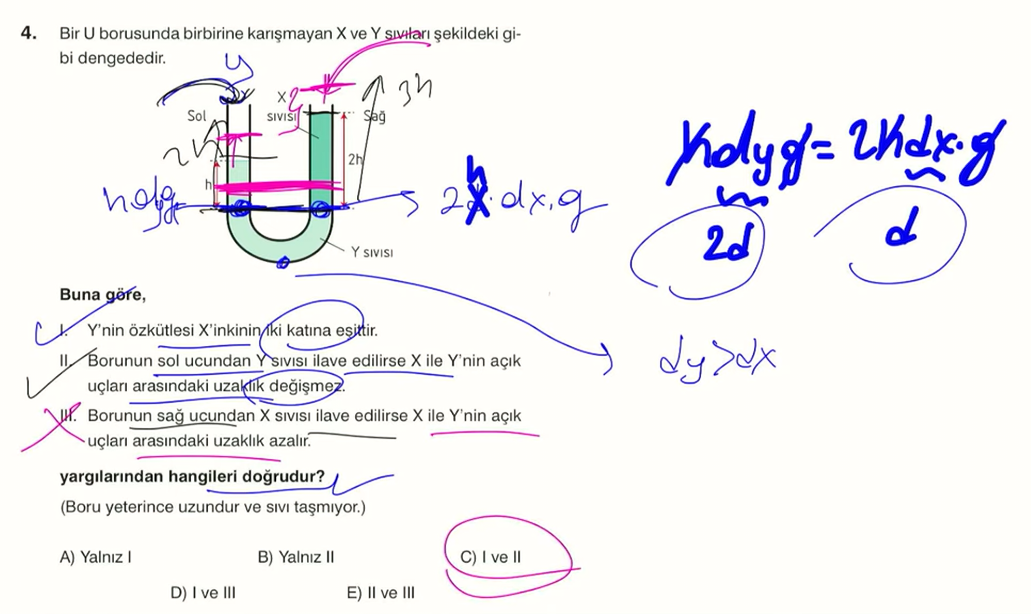 4. Bir U borusunda birbirine karışmayan X ve Y sıvıları şekildeki gi-
bi dengededir.
y
X
SIVISI
Sol
Sağ
3h
2h
h
2h
hdyg
2h.dx.g
Y SIVISI
hdyg = 2hdx.g
2d
d
dy>dx
Buna göre,
I. Y'nin özkütlesi X'inkinin iki katına eşittir.
II. Borunun sol ucundan Y sıvısı ilave edilirse X ile Y'nin açık
uçları arasındaki uzaklık değişmez.
III. Borunun sağ ucundan X sıvısı ilave edilirse X ile Y'nin açık
uçları arasındaki uzaklık azalır.
yargılarından hangileri doğrudur?
(Boru yeterince uzundur ve sıvı taşmıyor.)
A) Yalnız I
B) Yalnız II
C) I ve II
D) I ve III
E) II ve III